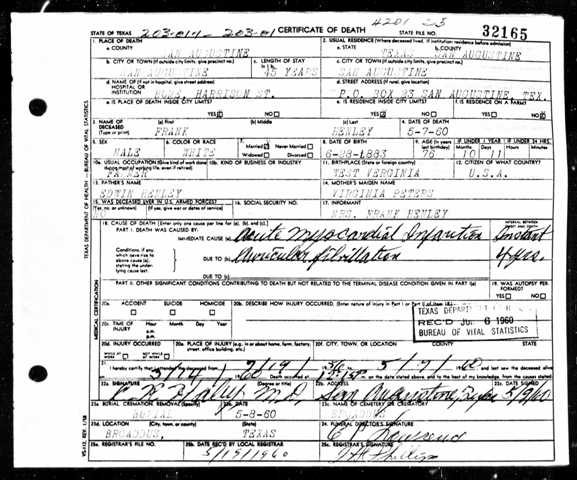 4201 25
STATE OF TEXAS 203-014 - 203-01 CERTIFICATE OF DEATH STATE FILE NO. 32165
1. PLACE OF DEATH 2. USUAL RESIDENCE (Where deceased lived. If institution: residence before admission)
a. COUNTY SAN AUGUSTINE a. STATE TEXAS SAN AUGUSTINE
b. CITY OR TOWN (If outside city limits, give precinct no.) c. LENGTH OF STAY c. CITY OR TOWN (If outside city limits, give precinct no.)
SAN AUGUSTINE 45 YEARS SAN AUGUSTINE
d. NAME OF (If not in hospital, give street address) HOSPITAL OR INSTITUTION HARRISON ST. d. STREET ADDRESS (If rural, give location) P.O. BOX 23 SAN AUGUSTINE, TEX.
e. IS PLACE OF DEATH INSIDE CITY LIMITS? YES NO e. IS RESIDENCE INSIDE CITY LIMITS? YES NO f. IS RESIDENCE ON A FARM? YES NO
3. NAME OF DECEASED (Type or print) (a) First (b) Middle (c) Last 4. DATE OF DEATH
FRANK HENLEY 5-7-60
5. SEX 6. COLOR OR RACE 7. Married Never Married Widowed Divorced 8. DATE OF BIRTH 9. AGE (In years last birthday) IF UNDER 1 YEAR Months Days IF UNDER 24 HRS. Hours Min.
MALE WHITE 6-28-1883 76 10 11
10a. USUAL OCCUPATION (Give kind of work done during most of working life, even if retired) 10b. KIND OF BUSINESS OR INDUSTRY 11. BIRTHPLACE (State or foreign country) 12. CITIZEN OF WHAT COUNTRY?
FARMER WEST VERGINIA U.S.A.
13. FATHER'S NAME 14. MOTHER'S MAIDEN NAME
EDWIN HENLEY VIRGINIA PETERS
15. WAS DECEASED EVER IN U.S. ARMED FORCES? (Yes, no, or unknown) (If yes, give war or dates of service) 16. SOCIAL SECURITY NO. 17. INFORMANT
NO MRS. FRANK HENLEY
18. CAUSE OF DEATH [Enter only one cause per line for (a), (b), and (c).] INTERVAL BETWEEN ONSET AND DEATH
PART I. DEATH WAS CAUSED BY:
IMMEDIATE CAUSE (a) Acute Myocardial Infarction Instant
Conditions, if any, which gave rise to above cause (a), stating the underlying cause last. DUE TO (b) Auricular fibrillation 4 yrs.
DUE TO (c)
PART II. OTHER SIGNIFICANT CONDITIONS CONTRIBUTING TO DEATH BUT NOT RELATED TO THE TERMINAL DISEASE CONDITION GIVEN IN PART I (a) 19. WAS AUTOPSY PERFORMED? YES NO
20a. ACCIDENT SUICIDE HOMICIDE 20b. DESCRIBE HOW INJURY OCCURRED. (Enter nature of injury in Part I or Part II of item 18.)
20c. TIME OF INJURY Hour Month Day Year
TEXAS DEPARTMENT
REC'D JUN 6 1960
BUREAU OF VITAL STATISTICS
20d. INJURY OCCURRED WHILE AT WORK NOT WHILE AT WORK 20e. PLACE OF INJURY (e.g. in or about home, farm, factory, street, office building, etc.) 20f. CITY, TOWN, OR LOCATION COUNTY STATE
21. I hereby certify that I attended the deceased from 5/7/ 1960 and last saw the deceased alive
Death occurred at on the date stated above, and to the best of my knowledge, from the causes stated.
22a. SIGNATURE (Degree or title) M.D. 22b. ADDRESS San Augustine, Texas 5/9/60
23a. BURIAL CREMATION REMOVAL (Specify) 23b. DATE 23c. NAME OF CEMETERY OR CREMATORY
BURIAL 5-8-60 BROADDUS
23d. LOCATION (City) (State) 24. FUNERAL DIRECTOR'S SIGNATURE
BROADDUS, TEXAS
25a. REGISTRAR'S FILE NO. 25b. DATE REC'D BY LOCAL REGISTRAR 25c. REGISTRAR'S SIGNATURE
5/15/1960
TEXAS DEPARTMENT OF HEALTH - BUREAU OF VITAL STATISTICS
MEDICAL CERTIFICATION